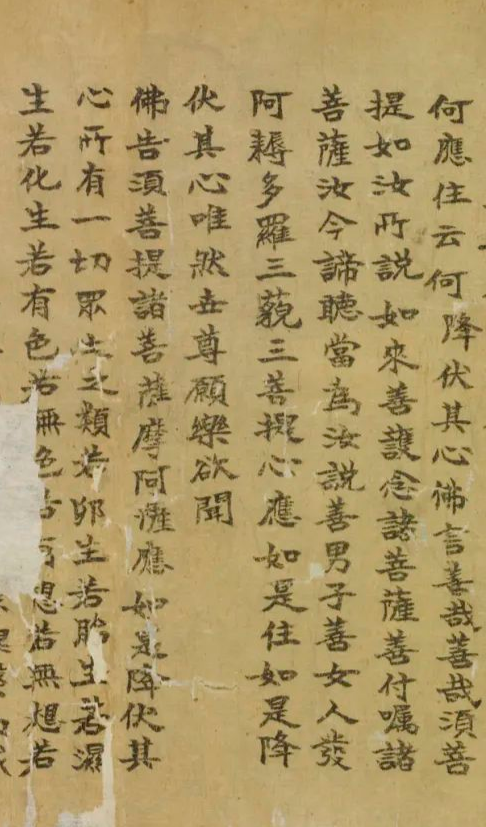 何應住云何降伏其心佛言善哉善哉須菩
提如汝所說如來善護念諸菩薩善付囑諸
菩薩汝今諦聽當為汝說善男子善女人發
阿耨多羅三藐三菩提心應如是住如是降
伏其心唯然世尊願樂欲聞
佛告須菩提諸菩薩摩阿薩應如是降伏其
心所有一切眾生之類若卵生若胎生若濕
生若化生若有色若無色若有想若無想若